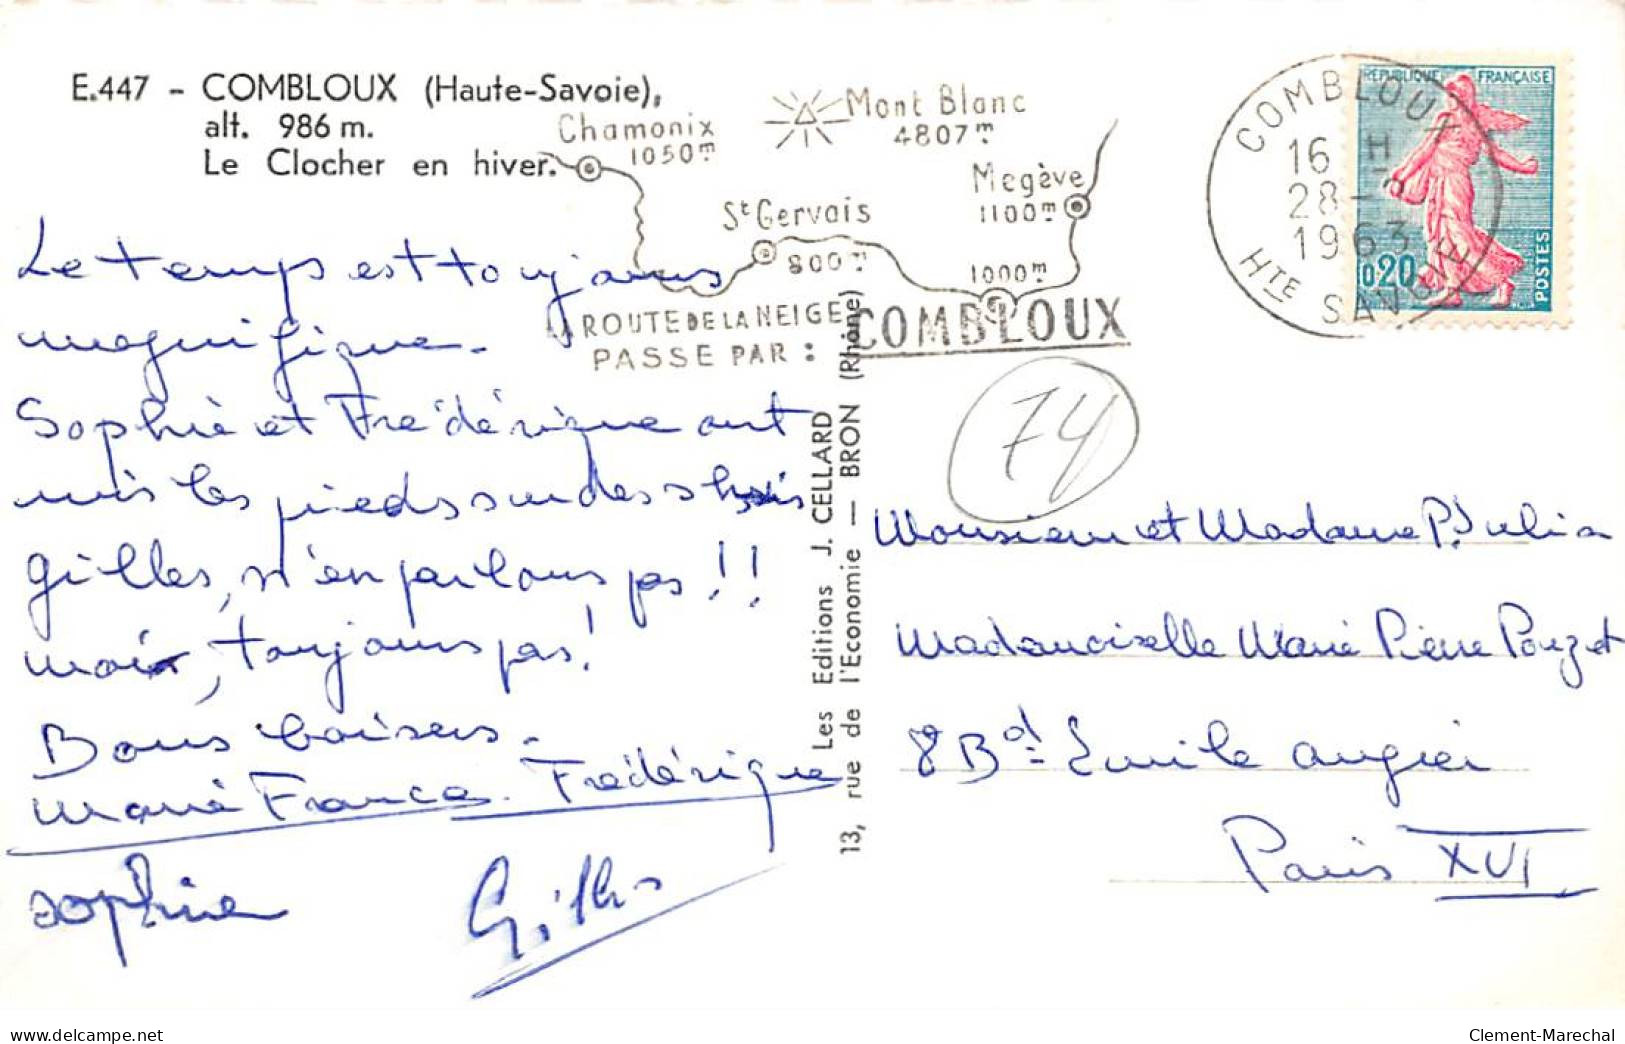 E.447 - COMBLOUX (Haute-Savoie),
alt. 986 m.
Le Clocher en hiver.
Chamonix
1050m
Mont Blanc
4807m
Megève
1100m
St Gervais
800m
1000m
ROUTE DE LA NEIGE
PASSE PAR : COMBLOUX
COMBLOUX
16 H
28 -
1963
HTE SAVOIE
RÉPUBLIQUE FRANÇAISE
0,20
POSTES
74
Le temps est toujours
magnifique.
Sophie et Frédérique ont
mis les pieds sur des skis
Gilles, n'en parlons pas !!
moi, toujours pas !
Bons baisers.
Marie France. Frédérique
sophie Gilles
Les Editions J. CELLARD
13, rue de l'Economie — BRON (Rhône)
Monsieur et Madame P. Julia
Mademoiselle Marie Pierre Pouzet
8 Bd Emile Augier
Paris XVI
delcampe.net
Clement-Marechal